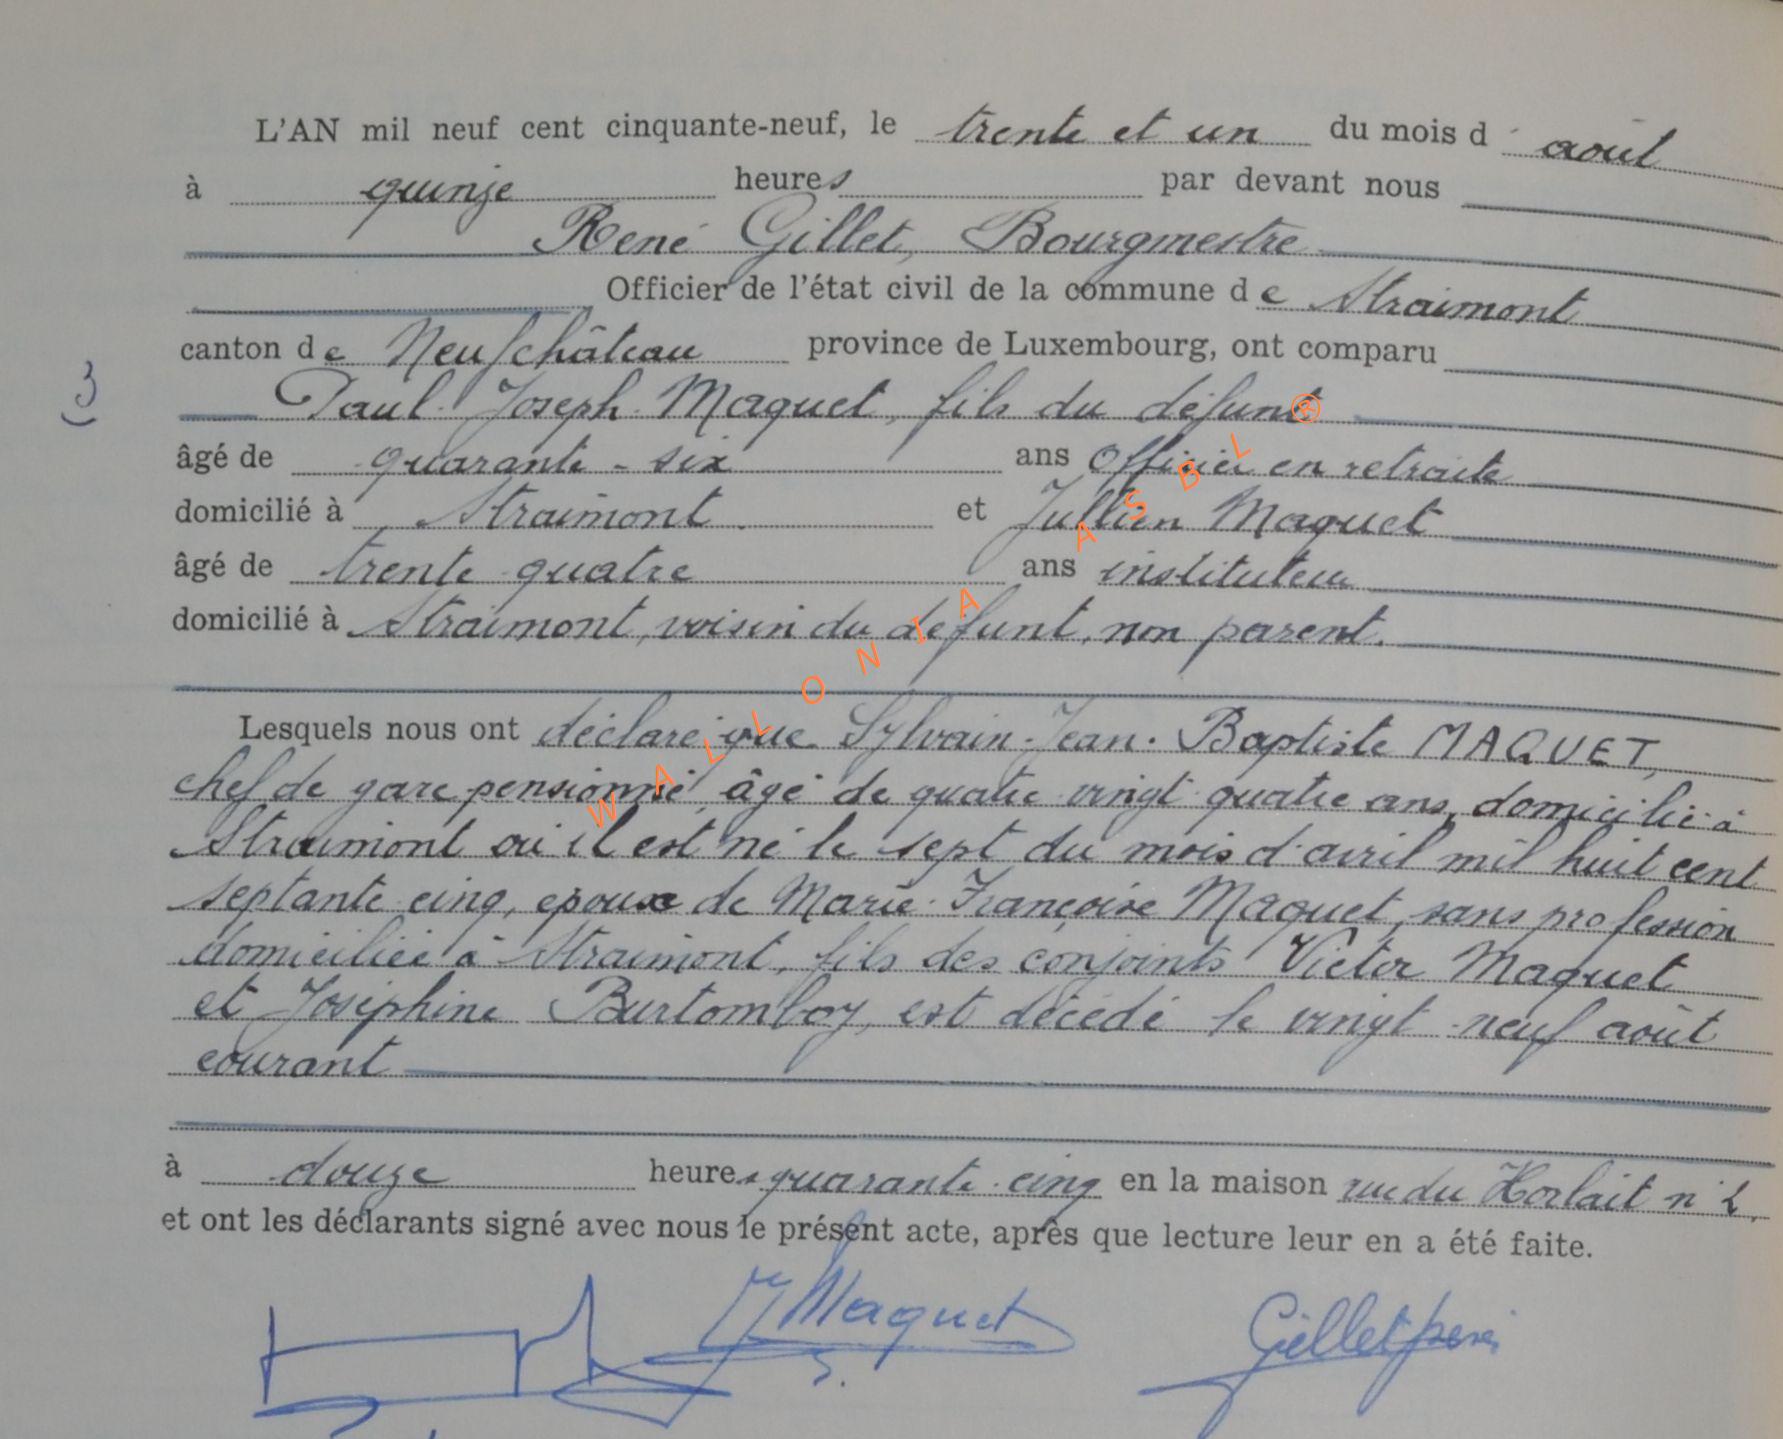 L'AN mil neuf cent cinquante-neuf, le trente et un du mois d' août
à quinze heures par devant nous
René Gillet, Bourgmestre
Officier de l'état civil de la commune de Straimont
canton de Neufchâteau province de Luxembourg, ont comparu
3
Paul Joseph Maquet, fils du défunt ®
âgé de quarante-six ans Officier en retraite
domicilié à Straimont et Jullien Maquet
âgé de trente quatre ans instituteur
domicilié à Straimont, voisin du défunt, non parent.
WALLONIA ASBL
Lesquels nous ont déclaré que Sylvain-Jean-Baptiste MAQUET,
chef de gare pensionné, âgé de quatre vingt quatre ans, domicilié à
Straimont où il est né le sept du mois d'avril mil huit cent
septante cinq, epoux de Marie-Françoise Maquet, sans profession
domiciliée à Straimont, fils des conjoints Victor Maquet
et Joséphine Burtomboy, est décédé le vingt-neuf août
courant
à douze heures quarante-cinq en la maison rue du Horlait n°
et ont les déclarants signé avec nous le présent acte, après que lecture leur en a été faite.
J Maquet Gillet